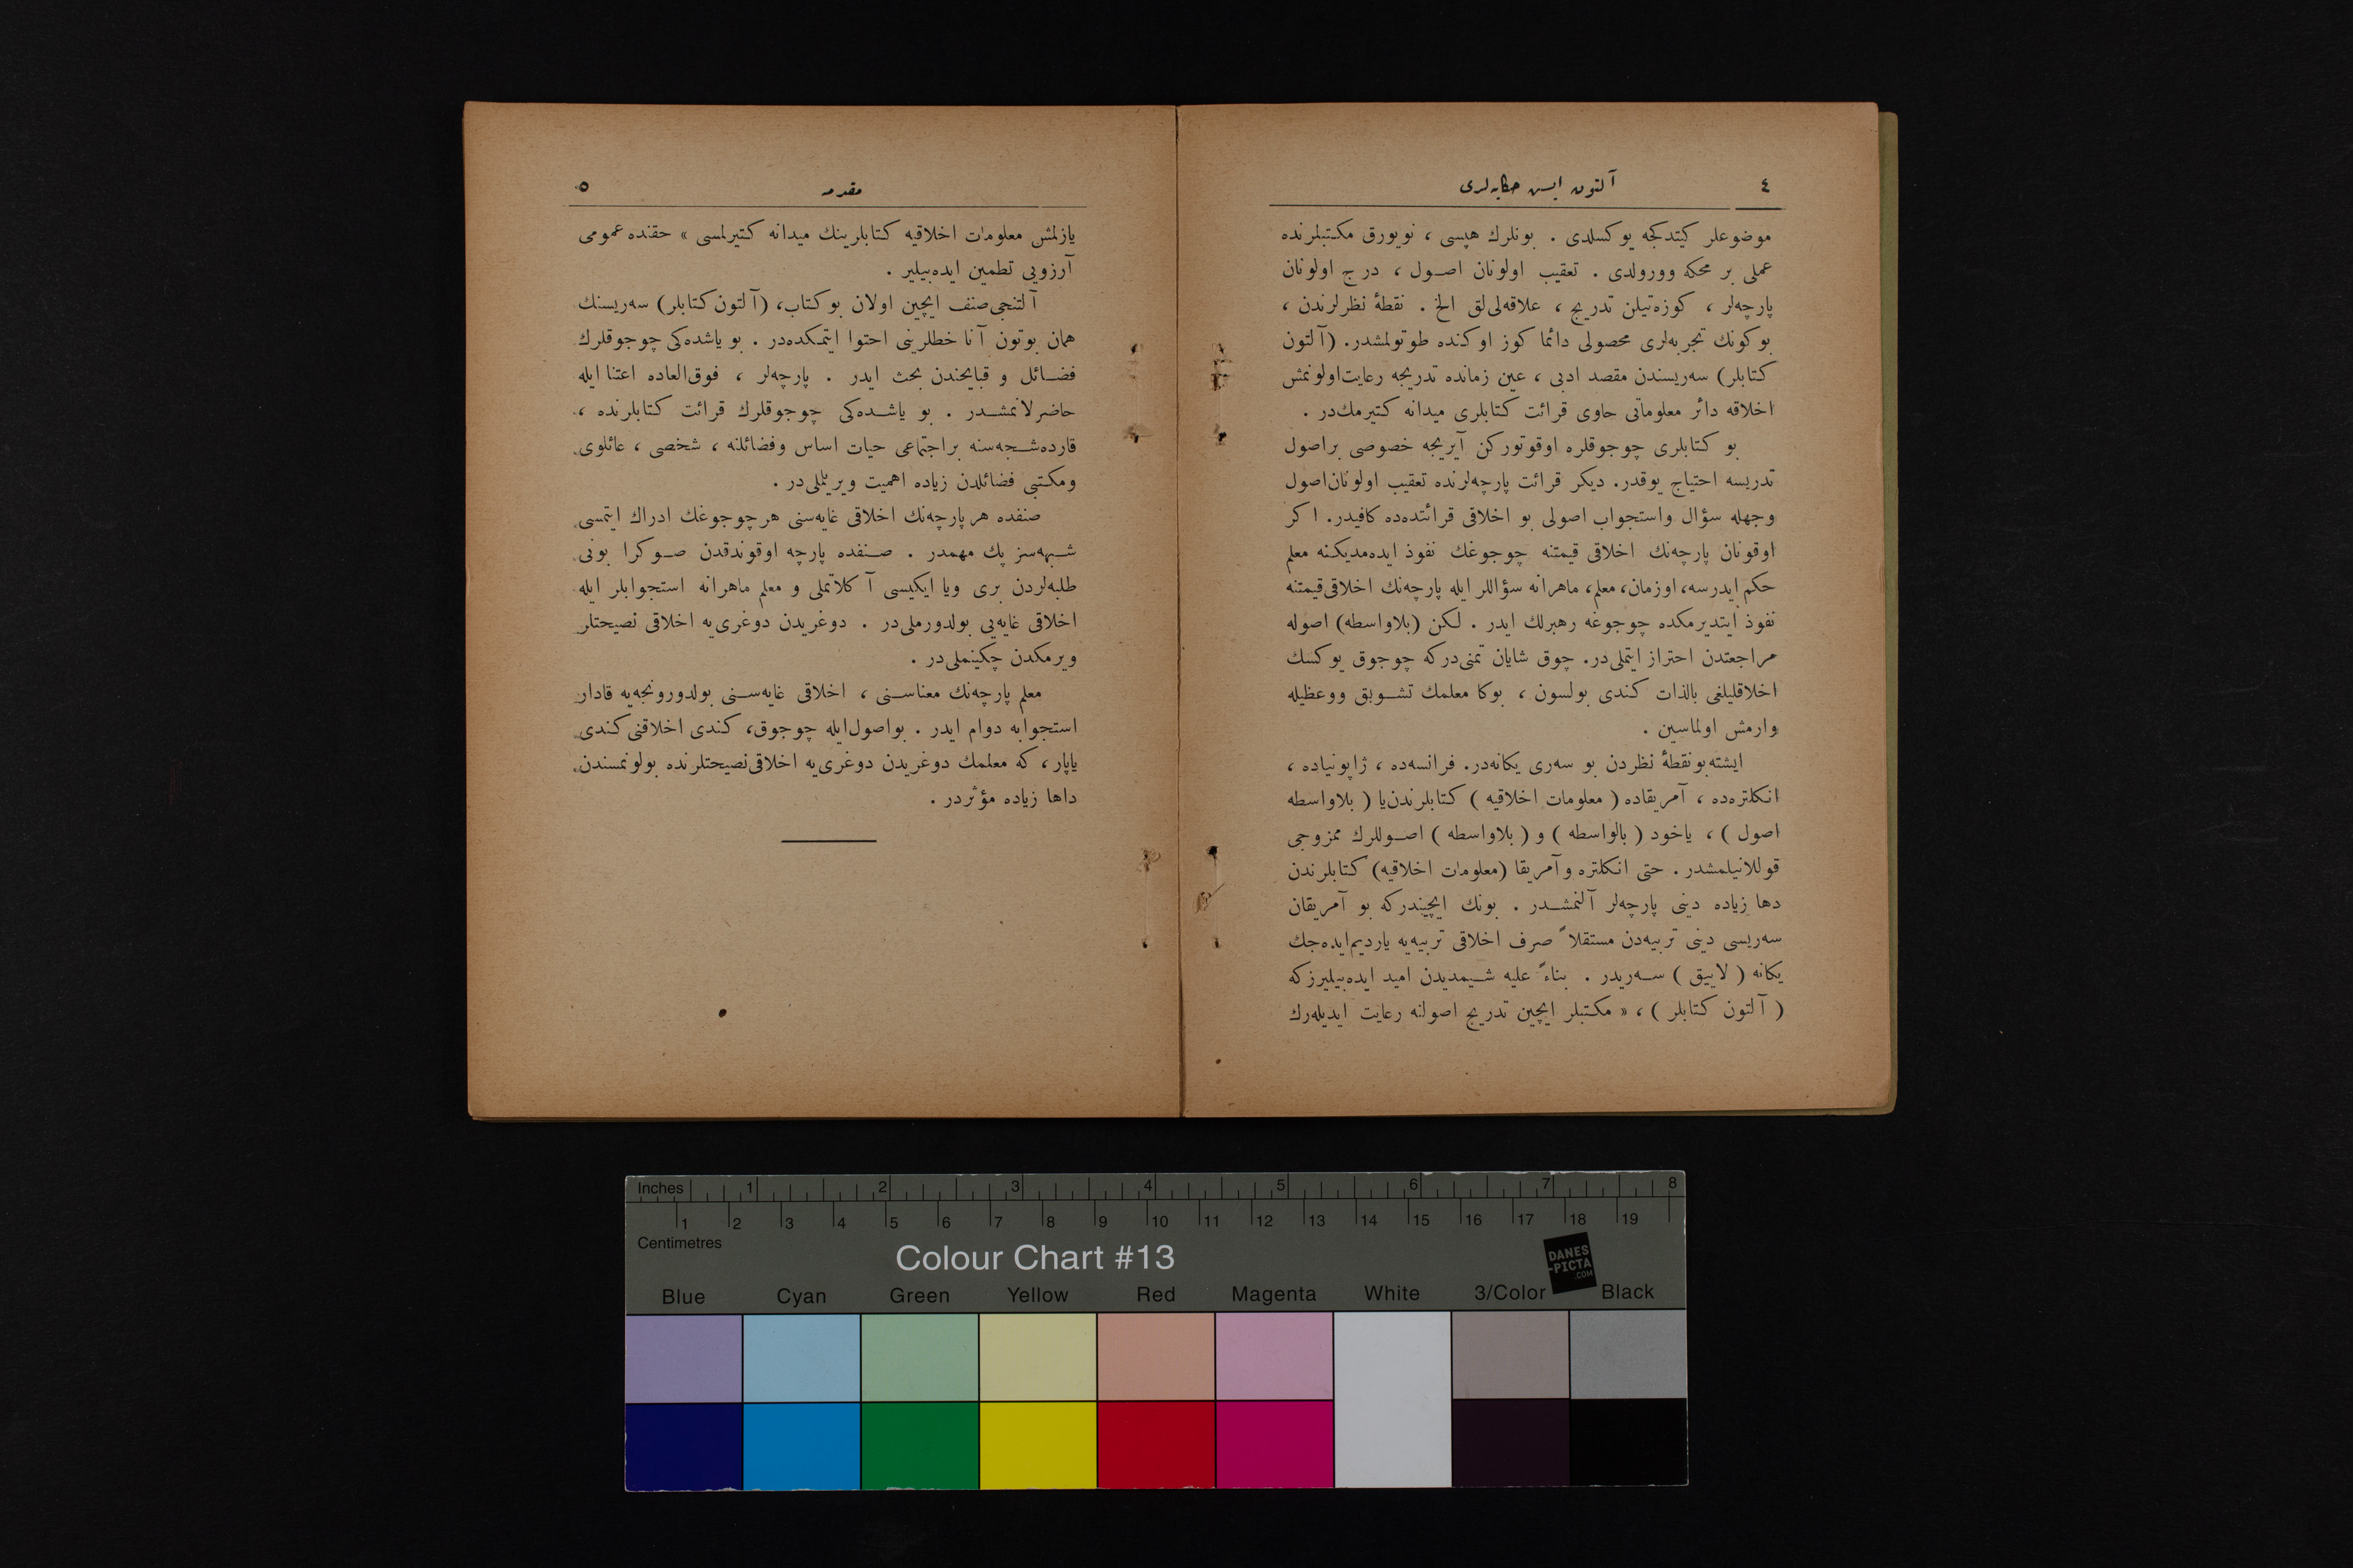 ٤
آلتون ایسی حكایه‌لری
موضوعلر كیتدكجه یوكسلدی . بونلرك هپسی ، نویورق مكتبلرنده
عملی بر محكه وورولدی . تعقیب اولونان اصول ، درج اولونان
پارچه‌لر ، كوزه‌تیلن تدریج ، علاقه‌لی‌لق الخ . نقطهٔ نظرلرندن ،
بوكونك تجربه‌لری محصولی دائما كوز اوكنده طوتولمشدر. (آلتون
كتابلر) سه‌ریسندن مقصد ادبی ، عین زمانده تدریجه رعایت اولونمش
اخلاقه دائر معلوماتی حاوی قرائت كتابلری میدانه كتیرمك‌در .
بو كتابلری چوجوقلره اوقوتوركن آیریجه خصوصی براصول
تدریسه احتیاج یوقدر. دیكر قرائت پارچه‌لرنده تعقیب اولونان اصول
وجهله سؤال واستجواب اصولی بو اخلاقی قرائتده‌ده كافیدر. اكر
اوقونان پارچه‌نك اخلاقی قیمتنه چوجوغك نفوذ ایده‌مدیكنه معلم
حكم ایدرسه، اوزمان، معلم، ماهرانه سؤاللر ایله پارچه‌نك اخلاقی قیمتنه
نفوذ ایتدیرمكده چوجوغه رهبرلك ایدر . لكن (بلاواسطه) اصوله
مراجعتدن احتراز ایتملی‌در. چوق شایان تمنی‌دركه چوجوق یوكسك
اخلاقلیلغی بالذات كندی بولسون ، بوكا معلمك تشویق ووعظیله
وارمش اولماسین .
ایشته بونقطهٔ نظردن بو سه‌ری یكانه‌در. فرانسه‌ده ، ژاپونیاده ،
انكلتره‌ده ، آمریقاده ( معلومات اخلاقیه ) كتابلرندن یا ( بلاواسطه
اصول ) ، یاخود ( بالواسطه ) و ( بلاواسطه ) اصوللرك ممزوجی
قوللانیلمشدر . حتی انكلتره وآمریقا (معلومات اخلاقیه) كتابلرندن
دها زیاده دینی پارچه‌لر آلنمشدر . بونك ایچیندركه بو آمریقان
سه‌ریسی دینی تربیه‌دن مستقلاً صرف اخلاقی تربیه‌یه یاردیم ایده‌جك
یكانه ( لاییق ) سه‌ریدر . بناءً علیه شیمدیدن امید ایده‌بیلیرزكه
( آلتون كتابلر ) ، « مكتبلر ایچین تدریج اصولنه رعایت ایدیله‌رك
مقدمه
٥
یازلمش معلومات اخلاقیه كتابلرینك میدانه كتیرلمسی » حقنده عمومی
آرزویی تطمین ایده‌بیلیر .
آلتنجی صنف ایچین اولان بو كتاب، (آلتون كتابلر) سه‌ریسنك
همان بوتون آنا خطلرینی احتوا ایتمكده‌در . بو یاشده‌كی چوجوقلرك
فضائل و قبایحندن بحث ایدر . پارچه‌لر ، فوق‌العاده اعتنا ایله
حاضرلانمشدر . بو یاشده‌كی چوجوقلرك قرائت كتابلرنده ،
قارده‌شجه‌سنه براجتماعی حیات اساس وفضائلنه ، شخصی ، عائلوی
ومكتبی فضائلدن زیاده اهمیت ویریلملی‌در .
صنفده هر پارچه‌نك اخلاقی غایه‌سنی هر چوجوغك ادراك ایتمسی
شبهه‌سز پك مهمدر . صنفده پارچه اوقوندقدن صوكرا بونی
طلبه‌لردن بری ویا ایكیسی آكلاتملی و معلم ماهرانه استجوابلر ایله
اخلاقی غایه‌یی بولدورملی‌در . دوغریدن دوغری‌یه اخلاقی نصیحتلر
ویرمكدن چكینملی‌در .
معلم پارچه‌نك معناسنی ، اخلاقی غایه‌سنی بولدورونجه‌یه قادار
استجوابه دوام ایدر . بواصول ایله چوجوق، كندی اخلاقنی كندی
یاپار ، كه معلمك دوغریدن دوغری‌یه اخلاقی نصیحتلرنده بولونمسندن
داها زیاده مؤثردر .
Inches 1 2 3 4 5 6 7 8
1 2 3 4 5 6 7 8 9 10 11 12 13 14 15 16 17 18 19
Centimetres
Colour Chart #13
DANES
-PICTA
.COM
Blue Cyan Green Yellow Red Magenta White 3/Color Black